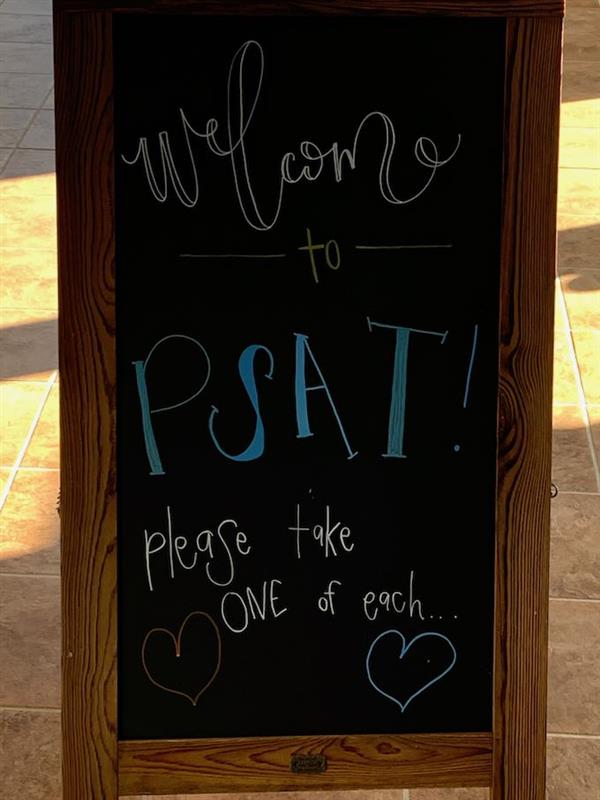 Welcome
to
PSAT!
please take
ONE of each...